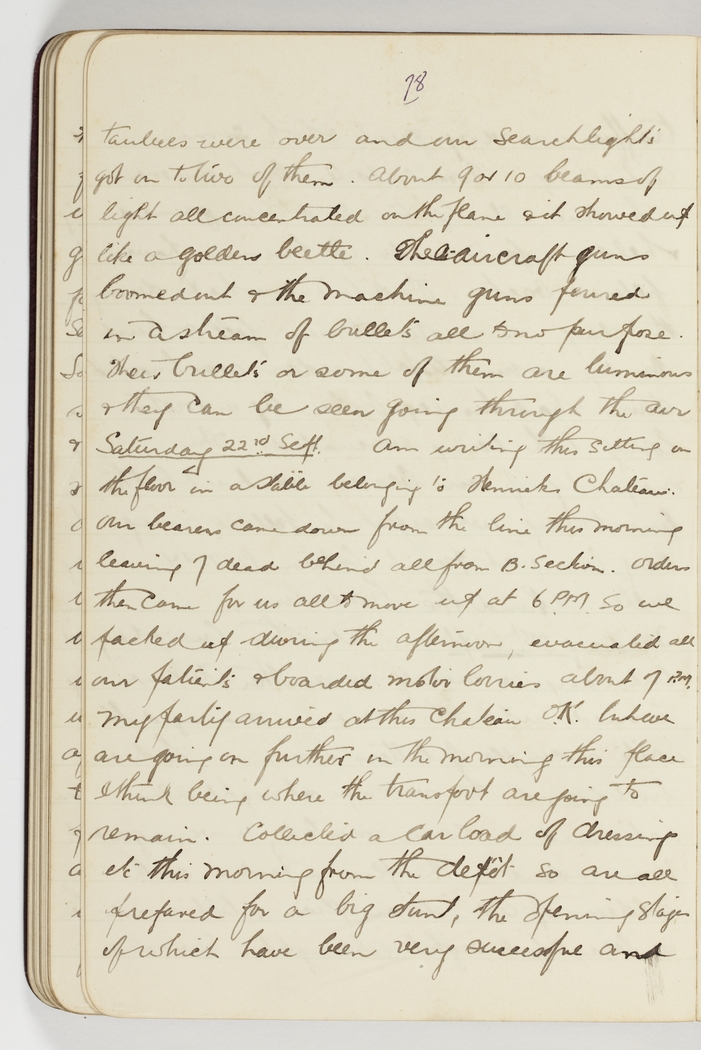 78
taubes were over and our searchlights
got on to two of them. About 9 or 10 beams of
light all concentrated on the plane & it showed up
like a golden beetle. The aircraft guns
boomed out & the machine guns poured
in a stream of bullets all to no purpose.
Their bullets or some of them are luminous
& they can be seen going through the air
Saturday 22nd Sept. Am writing this sitting on
the floor in a stable belonging to Henricks Chateau.
Our bearers came down from the line this morning
leaving 7 dead behind all from B. Section. Orders
then came for us all to move up at 6 PM so we
packed up during the afternoon, evacuated all
our patients & boarded motor lorries about 7 P.M.
My party arrived at this Chateau O.K. but we
are going on further in the morning this place
I think being where the transport are going to
remain. Collected a car load of dressing
etc this morning from the depôt so are all
prepared for a big stunt, the opening stages
of which have been very successful and